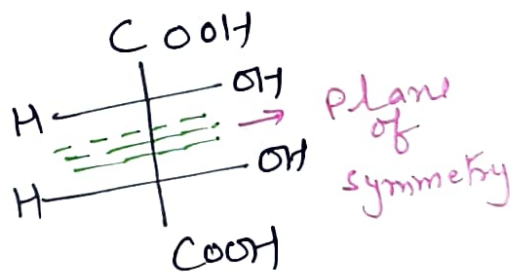 COOH
H OH
Plane
of
symmetry
H OH
COOH